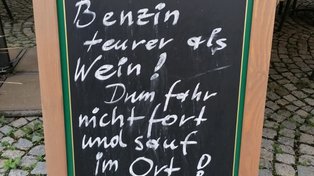 Benzin
teurer als
Wein!
Drum fahr
nicht fort
und sauf
im Ort!